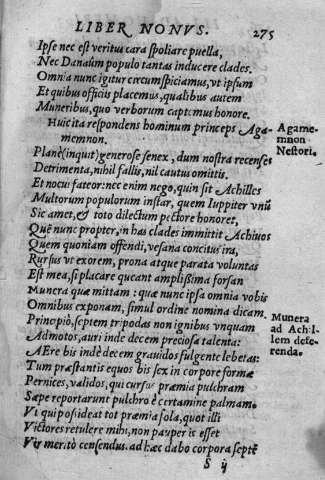 LIBER NONVS. 275
Ipse nec est veritus cara spoliare puella,
Nec Danaûm populo tantas inducere clades.
Omnia nunc igitur circumspiciamus, vt ipsum
Et quibus officiis placemus, qualibus autem
Muneribus, quo verborum captemus honore.
Huic ita respondens hominum princeps Aga-
memnon.
Agame-
mnon
Nestori.
Planè (inquit) generose senex, dum nostra recenses
Detrimenta, nihil fallis, nil cautus omittis.
Et nocui fateor: nec enim nego, quin sit Achilles
Multorum populorum instar, quem Iuppiter vnū
Sic amet, & toto dilectum pectore honoret,
Quē nunc propter, in has clades immittit Achiuos
Quem quoniam offendi, vesana concitus ira,
Rursus vt exorem, prona atque parata voluntas
Est mea, si placare queant amplissima forsan
Munera quæ mittam: quæ nunc ipsa omnia vobis
Omnibus exponam, simul ordine nomina dicam.
Principiò, septem tripodas non ignibus vnquam
Admotos, auri inde decem preciosa talenta:
Munera
ad Achil
lem defe-
renda.
AEre bis inde decem grauidos fulgente lebetas:
Tum præstantis equos bis sex in corpore formæ
Pernices, validos, qui cursus præmia pulchram
Sæpe reportarunt pulchro è certamine palmam.
Vt qui possideat tot præmia sola, quot illi
Victores retulere mihi, non pauper is esset
Vir meritò censendus. ad hæc dabo corpora septē
S ij